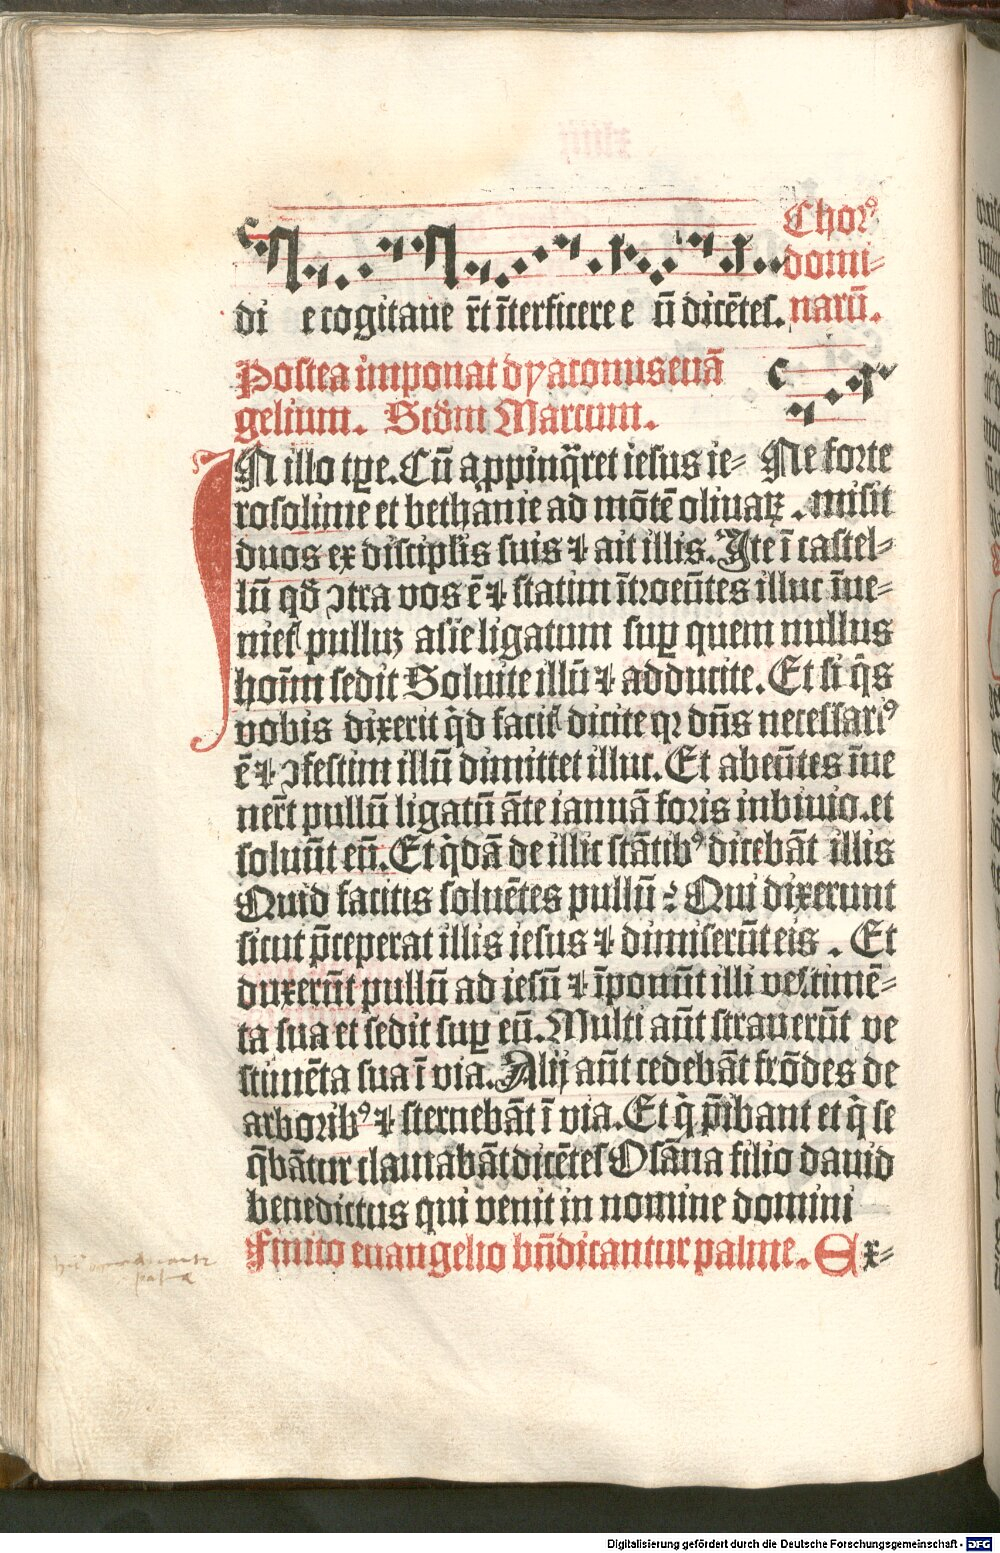 Chorꝰ
domi⸗
narū.
di e cogitaue r̄t īterficere e ū dicētes.
Postea imponat dyaconus euā
gelium. Scd̄m Marcum.
IN illo tꝑe. Cū appinq̄ret iesus ie⸗ Ne forte
rosolime et bethanie ad mōtē oliuaꝝ . misit
duos ex discipľis suis ⁊ ait illis. Ite ī castel⸗
lū qđ ↄtra vos ē ⁊ statim ītroeūtes illuc īue⸗
nietſ pulluꝫ asīe ligatum suꝑ quem nullus
hoīm sedit Soluite illū ⁊ adducite. Et si q̄s
vobis dixerit q̄d facitſ dicite qꝛ dn̄s necessariꝰ
ē ⁊ ↄfestim illū dimittet illuc. Et abeūtes īue
ner̄t pullū ligatū āte ianuā foris in biuio. et
soluūt eū. Et q̄dā de illic stātibꝰ dicebāt illis
Quid facitis soluētes pullū ? Qui dixerunt
sicut p̄ceperat illis iesus ⁊ dimiserūt eis . Et
duxerūt pullū ad iesū ⁊ īponūt illi vestimē⸗
ta sua et sedit suꝑ eū. Multi aūt strauerūt ve
stimēta sua ī via. Alij aūt cedebāt frōdes de
arboribꝰ ⁊ sternebāt ī via. Et q̄ p̄ibant et q̄ se
q̄bātur clamabāt dicētes Osāna filio dauid
benedictus qui venit in nomine domini
Finito euangelio bn̄dicantur palme. Ex⸗
Digitalisierung gefördert durch die Deutsche Forschungsgemeinschaft - DFG